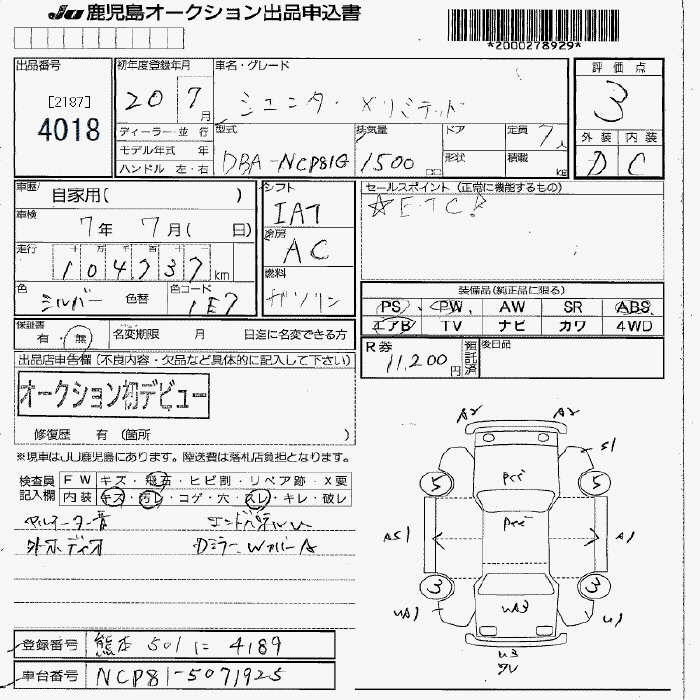 JU 鹿児島オークション出品申込書
*2000278929*
出品番号
[2187]
4018
初年度登録年月
20 7月
ディーラー・並 行
モデル年式 年
ハンドル 左・右
車名・グレード
シエンタ・Xリミテッド
型式
DBA-NCP81G
排気量
1500 cc
ドア
形状
定員 7人
積載 kg
評価点
3
外装 内装
D C
車歴
自家用( )
車検
7年 7月( 日)
走行
十 万 千 百 十 一
104737km
色
シルバー 色替
色コード
1E7
シフト
IAT
冷房
AC
燃料
ガソリン
セールスポイント (正常に機能するもの)
☆ETC!
装備品(純正品に限る)
PS PW AW SR ABS
エアB TV ナビ カワ 4WD
R券
11,200円
預託済
後日品
保証書
有・無
名変期限 月 日迄に名変できる方
出品店申告欄(不良内容・欠品など具体的に記入して下さい)
オークション初デビュー
修復歴 有 (箇所 )
※現車はJU鹿児島にあります。陸送費は落札店負担となります。
検査員
記入欄
FW キズ・飛石・ヒビ割・リペア跡・X要
内装 キズ・汚レ・コゲ・穴・スレ・キレ・破レ
外オーディオ
DミラーWカバーA
A2 A2
S1
5 5
A1
3 3
UA3
U3
登録番号 熊本 501 に 4189
車台番号 NCP81-5071925